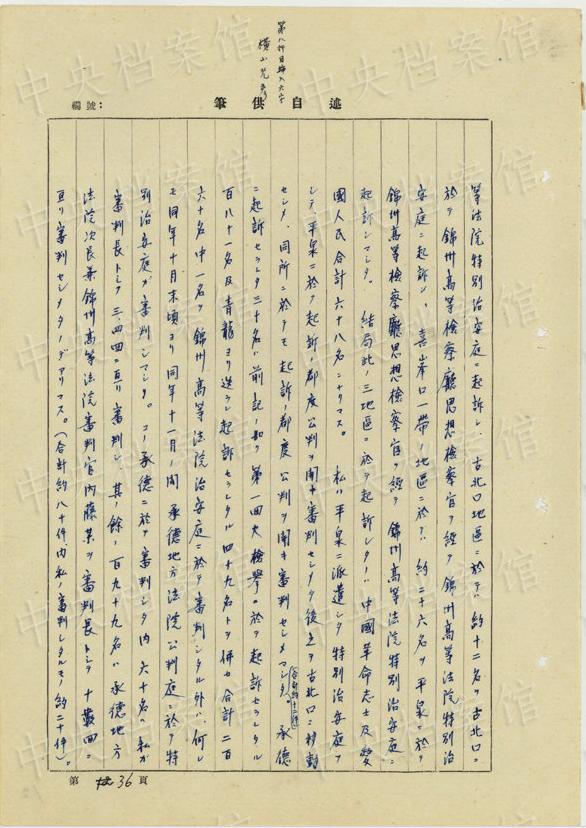 第八行目挿入六字
横山光彦
編號：
述自供筆
等法院特別治安庭ニ起訴シ、古北口地區ニ於テハ約十二名ヲ古北口ニ
於テ錦州高等検察廳思想検察官ヲ経テ錦州高等法院特別治
安庭ニ起訴シ、喜峯口一帶ノ地區ニ於テハ約二十六名ヲ平泉ニ於テ
錦州高等検察廳思想検察官ヲ経テ錦州高等法院特別治安庭ニ
起訴シマシタ。結局此ノ三地區ニ於テ起訴シタノハ中國革命志士及愛
國人民合計六十八名ニナリマス。私ハ平泉ニ派遣シタ特別治安庭ヲ
シテ、平泉ニ於テ起訴ノ都度公判ヲ開キ審判セシメタ後之ヲ古北口ニ移動
セシメ、同所ニ於テモ起訴ノ都度公判ヲ開キ審判セシメマシタ。承德
(合計約十二件)
ニ起訴セラレタ三十名ハ前記ノ如ク第一回大検擧ニ於テ起訴セラレタル
百八十一名及青龍ヨリ送ラレ起訴セラレタル四十九名トヲ併セ合計二百
六十名中一名ヲ錦州高等法院治安庭ニ於テ審判シタル外ハ、何レ
モ同年十月末頃ヨリ同年十一月ノ間承德地方法院公判庭ニ於テ特
別治安庭ガ審判シマシタ。コノ承德ニ於テ審判シタ内六十名ハ私ガ
審判長トシテ三、四回ニ亘リ審判シ、其ノ餘ノ百九十九名ハ承德地方
法院次長兼錦州高等法院審判官内藤某ヲ審判長トシテ十数回ニ
亘リ審判セシメタノデアリマス。(合計約八十件、内私ノ審判シタルモノ約二十件)。
第 36 頁
中央档案馆